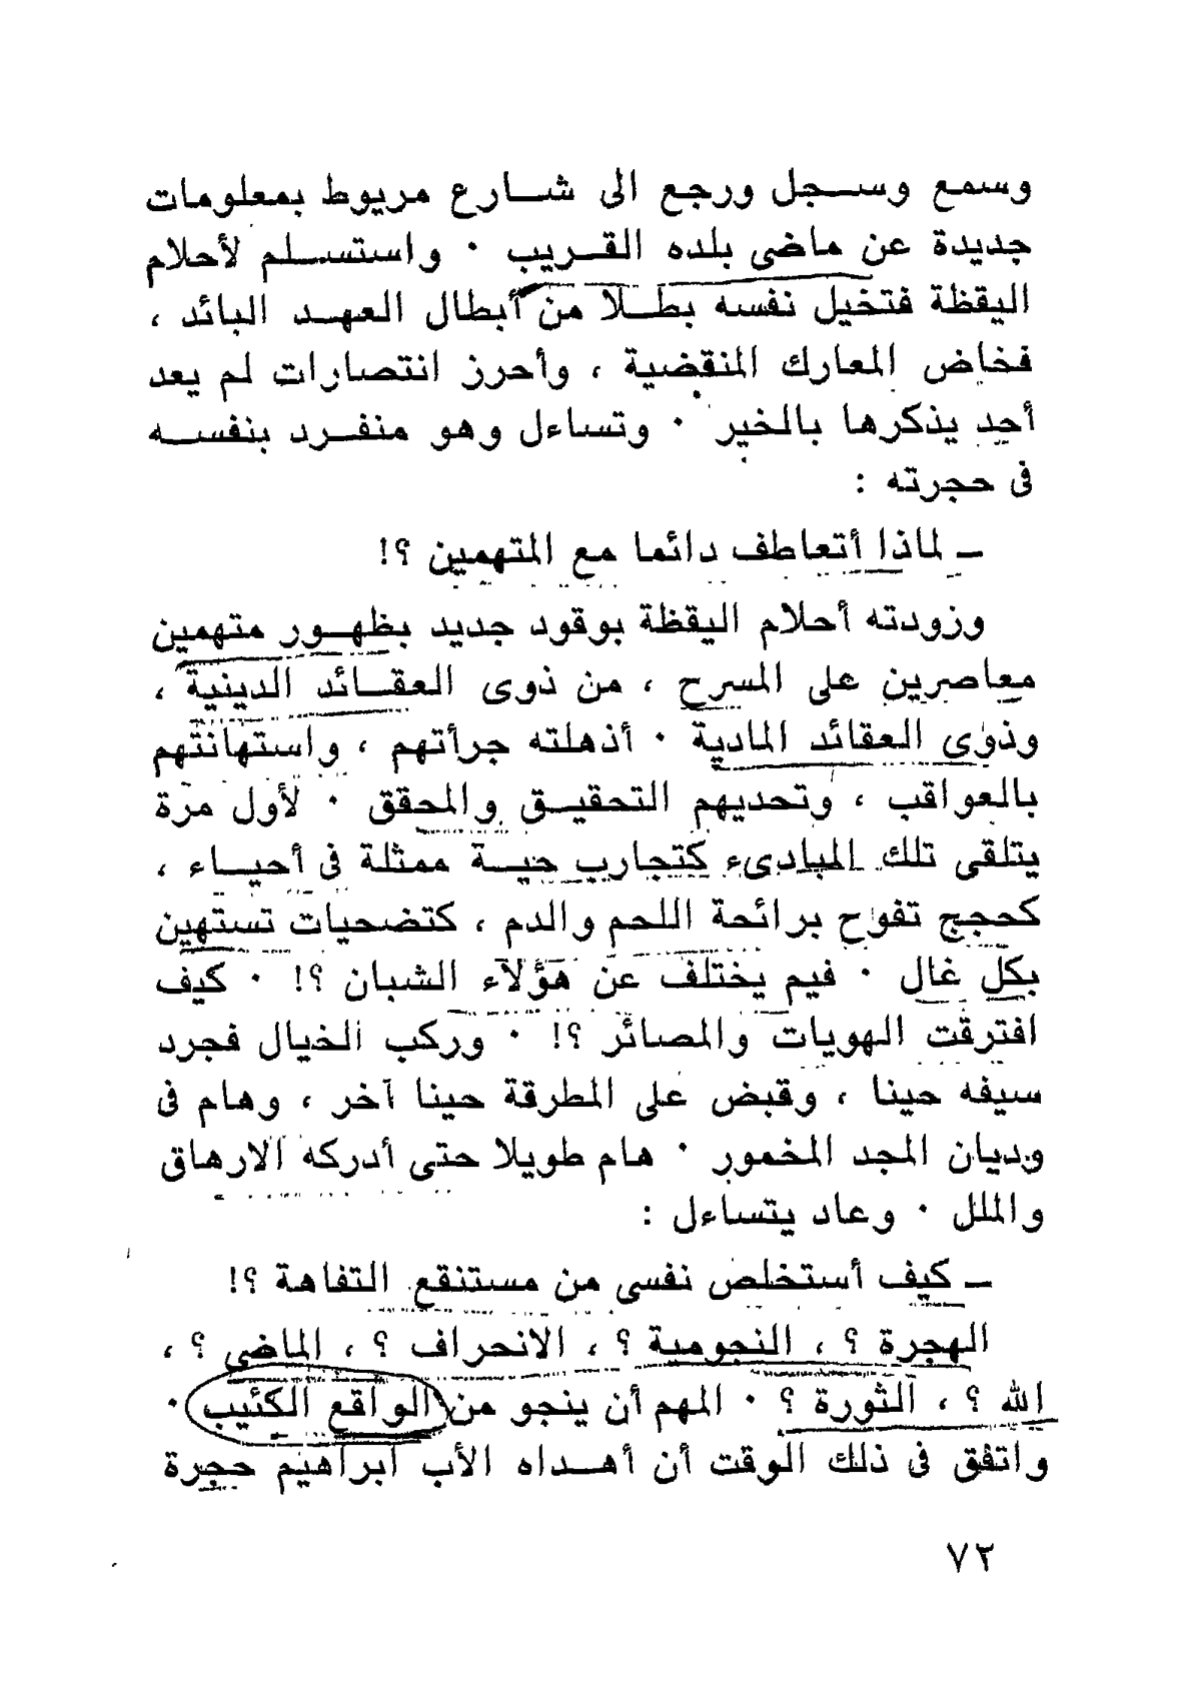 وسمع وسجل ورجع الى شارع مريوط بمعلومات
جديدة عن ماضى بلده القريب ٠ واستسلم لأحلام
اليقظة فتخيل نفسه بطلا من أبطال العهد البائد ،
فخاض المعارك المنقضية ، وأحرز انتصارات لم يعد
أحد يذكرها بالخير ٠ وتساءل وهو منفرد بنفسه
فى حجرته :
ــ لماذا أتعاطف دائما مع المتهمين ؟!
وزودته أحلام اليقظة بوقود جديد بظهور متهمين
معاصرين على المسرح ، من ذوى العقائد الدينية ،
وذوى العقائد المادية ٠ أذهلته جرأتهم ، واستهانتهم
بالعواقب ، وتحديهم التحقيق والمحقق ٠ لأول مرة
يتلقى تلك المبادىء كتجارب حية ممثلة فى أحياء ،
كحجج تفوح برائحة اللحم والدم ، كتضحيات تستهين
بكل غال ٠ فيم يختلف عن هؤلاء الشبان ؟! ٠ كيف
افترقت الهويات والمصائر ؟! ٠ وركب الخيال فجرد
سيفه حينا ، وقبض على المطرقة حينا آخر ، وهام فى
وديان المجد المخمور ٠ هام طويلا حتى أدركه الارهاق
والملل ٠ وعاد يتساءل :
ــ كيف أستخلص نفسى من مستنقع التفاهة ؟!
الهجرة ؟ ، النجومية ؟ ، الانحراف ؟ ، الماضى ؟ ،
الله ؟ ، الثورة ؟ ٠ المهم أن ينجو من الواقع الكئيب ٠
واتفق فى ذلك الوقت أن أهداه الأب ابراهيم حجرة
٧٢